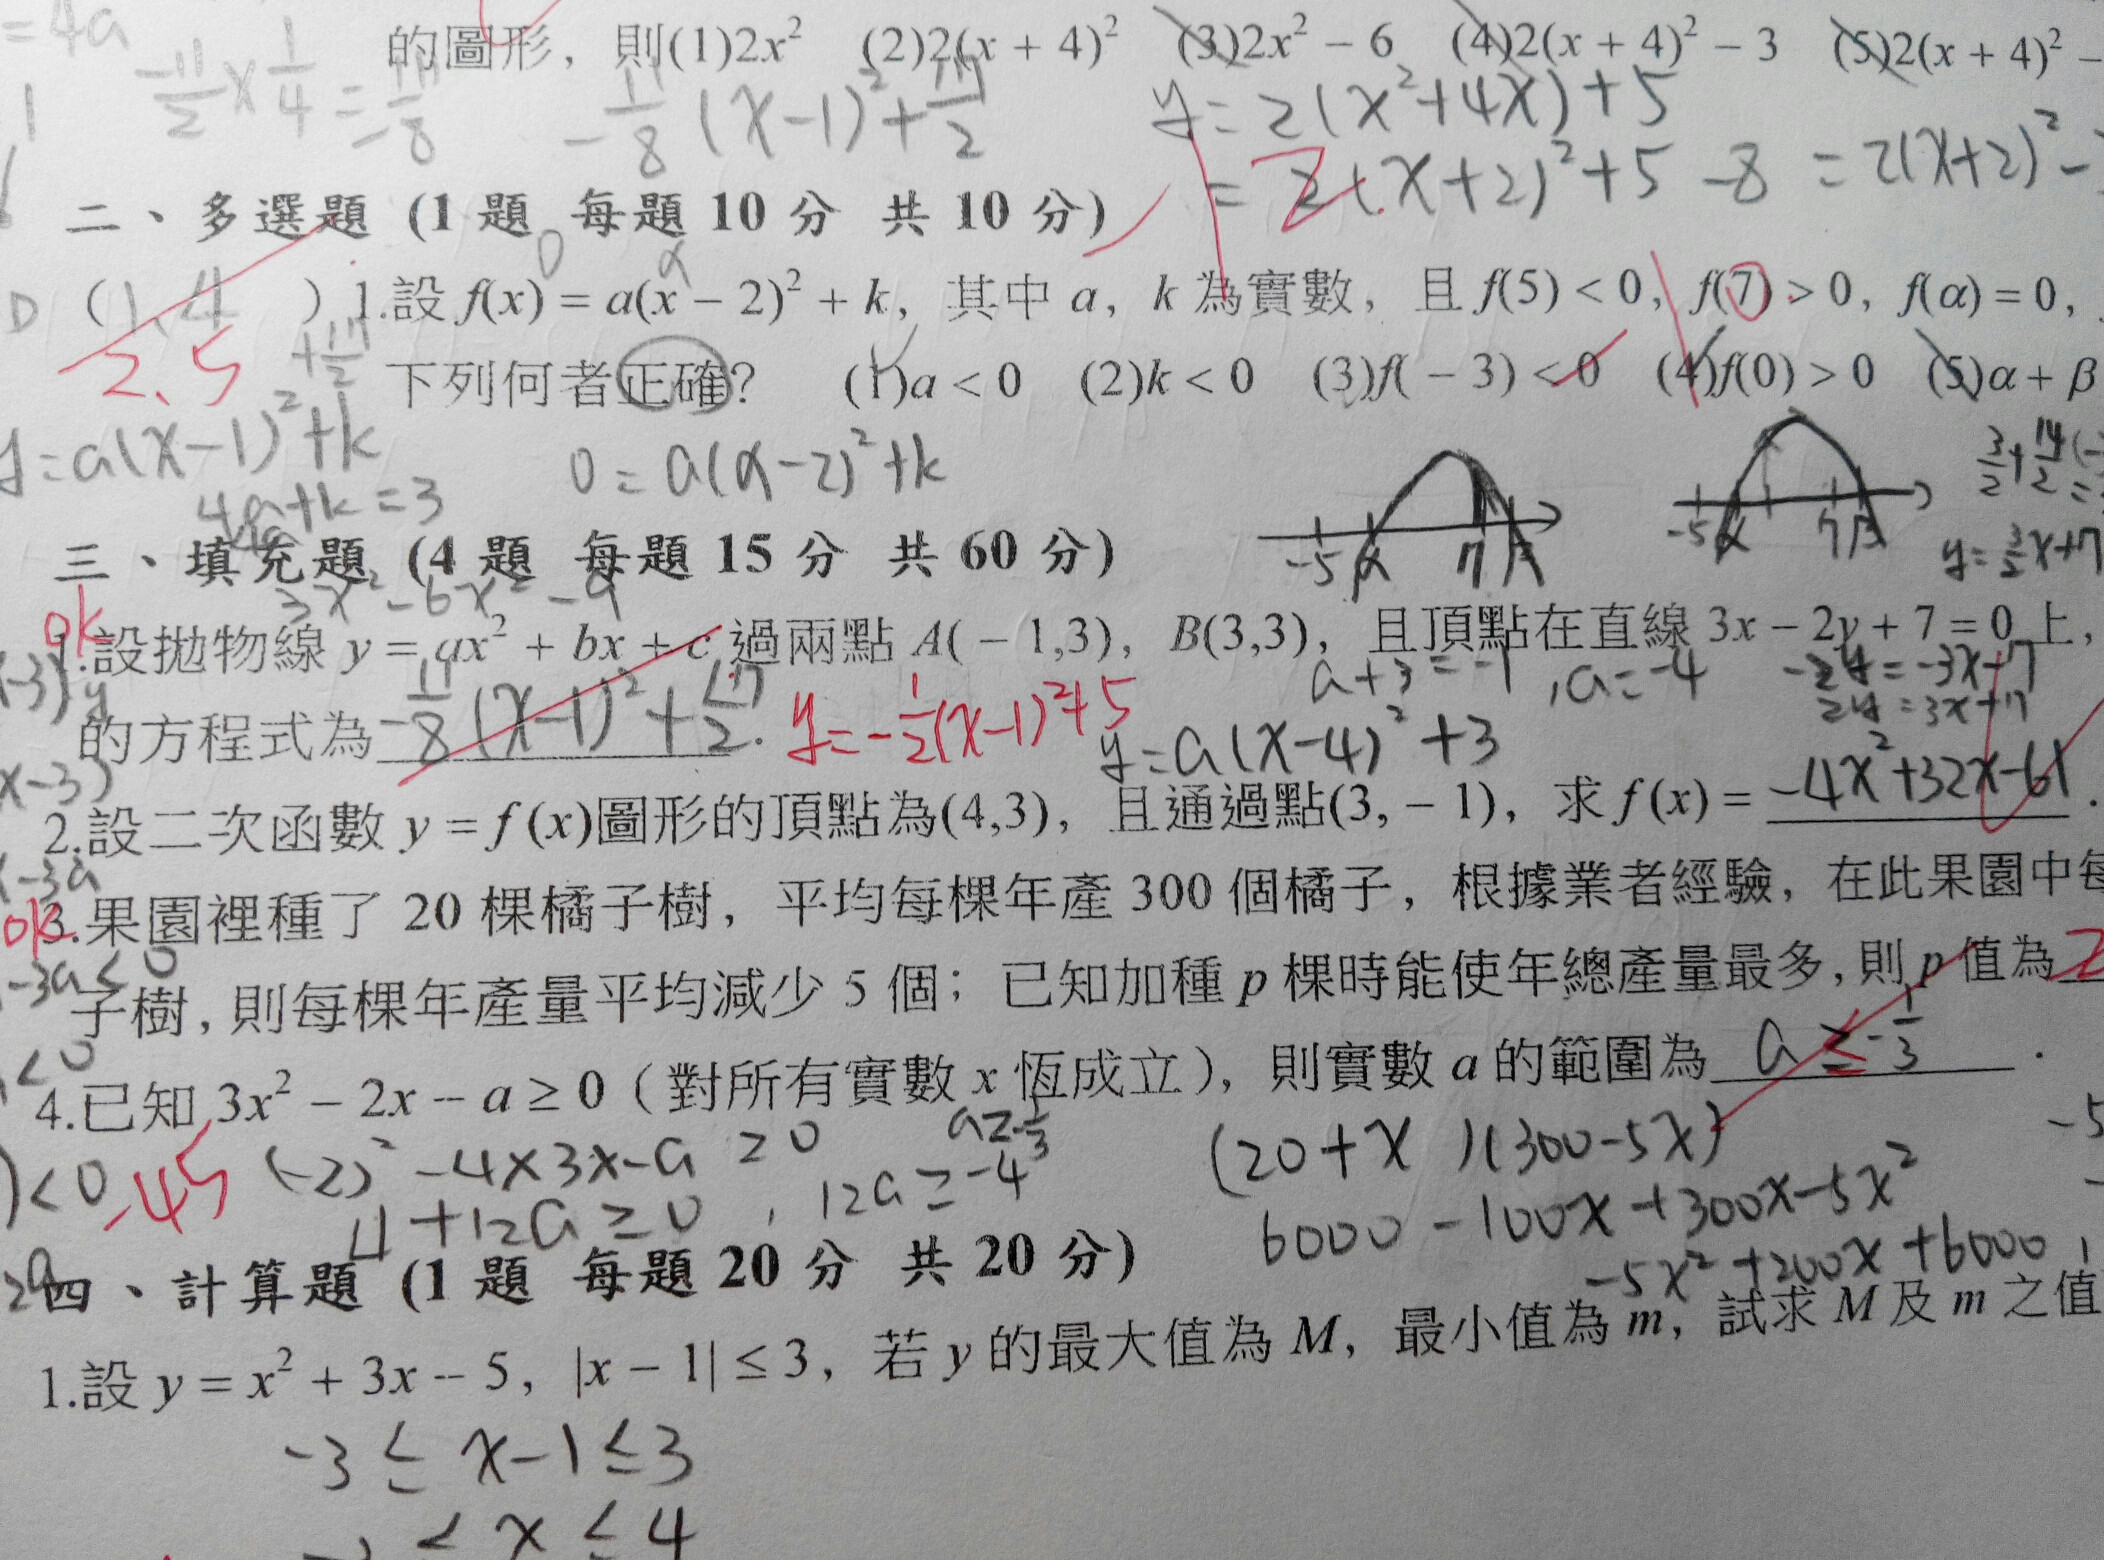 = 4a
-11/2 × 1/4 = -11/8
的圖形，則(1)2x² (2)2(x + 4)² (3)2x² − 6 (4)2(x + 4)² − 3 (5)2(x + 4)² −
-11/8 (x-1)² + 17/2
y = 2(x²+4x)+5
= 2(x+2)²+5 -8 = 2(x+2)² -
二、多選題 (1 題 每題 10 分 共 10 分)
(1,4) 1.設 f(x) = a(x − 2)² + k，其中 a，k 為實數，且 f(5) < 0，f(7) > 0，f(α) = 0，
2、5
下列何者正確? (1)a < 0 (2)k < 0 (3)f( − 3) < 0 (4)f(0) > 0 (5)α + β
+17/2
y=a(x-1)²+k
0 = a(α-2)²+k
4a+k=3
-5 α 7 β
-5 α 7 β
y=3/2x+7
三、填充題 (4 題 每題 15 分 共 60 分)
3x²-6x²-9
ok
1.設拋物線 y = ax² + bx + c 過兩點 A( − 1,3)，B(3,3)，且頂點在直線 3x − 2y + 7 = 0 上，
a+3=-1, a=-4
-2y=-3x-7
2y=3x+7
的方程式為 -11/8 (x-1)² + 17/2. y=-1/2(x-1)²+5
y=a(x-4)²+3
2.設二次函數 y = f (x)圖形的頂點為(4,3)，且通過點(3, − 1)，求 f (x) = -4x²+32x-61 .
ok
3.果園裡種了 20 棵橘子樹，平均每棵年產 300 個橘子，根據業者經驗，在此果園中每
-3a<0
子樹，則每棵年產量平均減少 5 個；已知加種 p 棵時能使年總產量最多，則 p 值為 2
4.已知 3x² − 2x − a ≥ 0（對所有實數 x 恆成立），則實數 a 的範圍為 a ≤ -1/3 .
-45
(-2)² -4×3×-a ≥0
a≥-1/3
4+12a≥0, 12a≥-4
(20+x)(300-5x)
6000-100x+300x-5x²
-5x²+200x+6000,
四、計算題 (1 題 每題 20 分 共 20 分)
1.設 y = x² + 3x − 5，|x − 1| ≤ 3，若 y 的最大值為 M，最小值為 m，試求 M 及 m 之值
-3 ≤ x-1 ≤ 3
≤ x ≤ 4